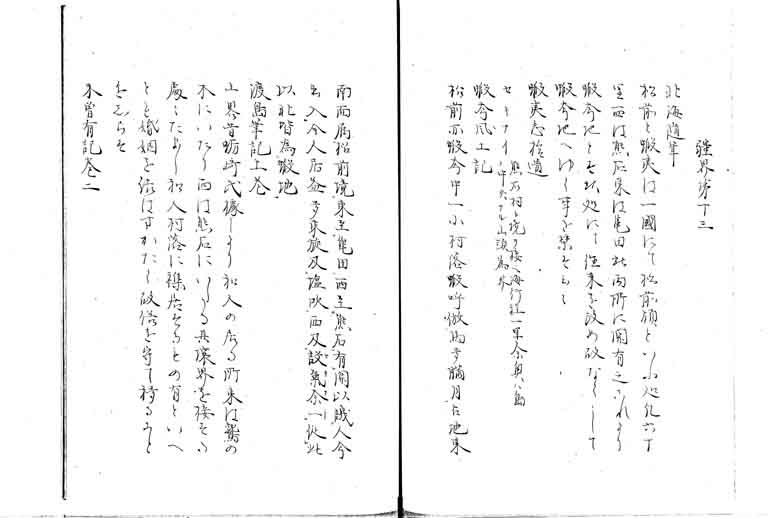 疆界第下三
北海随筆
松前と蝦夷は一国にて松前領といふ処凡六丁
里西は熊石東は亀田此両所に関有之これより
蝦夷地とそ此処にて往来を改め故なくして
蝦夷地へゆく事を禁せらる
蝦夷志拾遺
セキナイ 熊石村ト境ヲ接ヘ海行程一里余奥ハ島
中央ナル山頭為界
蝦夷風土記
松前亦蝦夷中一小村落蝦呼 為 月占地東
南西府松前境東至亀田西至熊石有関以譏人今
出入今人居益多東従及塩吹西及設 余一従此
以北皆為蝦地
渡島筆記上巻
上界昔蛎崎氏據しより和人の居る所東は鷲の
木にいたり西は熊石にいたる其壌界を接する
處々たあし和人村落に雑居せるもの有といへ
とも婚姻を結はすかたく故俗を守て移ること
をしらす
木曽有記巻二